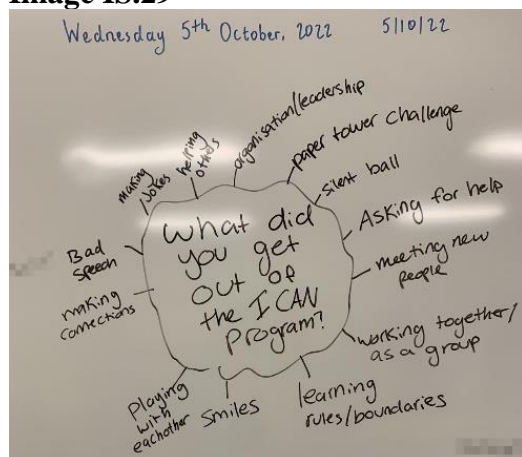 Image IS.29
Wednesday 5th October, 2022 5/10/22
What did
you get
out of
the I CAN
program?
making
jokes
helping
others
organisation/leadership
paper tower challenge
silent ball
Asking for help
meeting new
people
working together/
as a group
learning
rules/boundaries
smiles
Playing
with
eachother
making
connections
Bad
speech